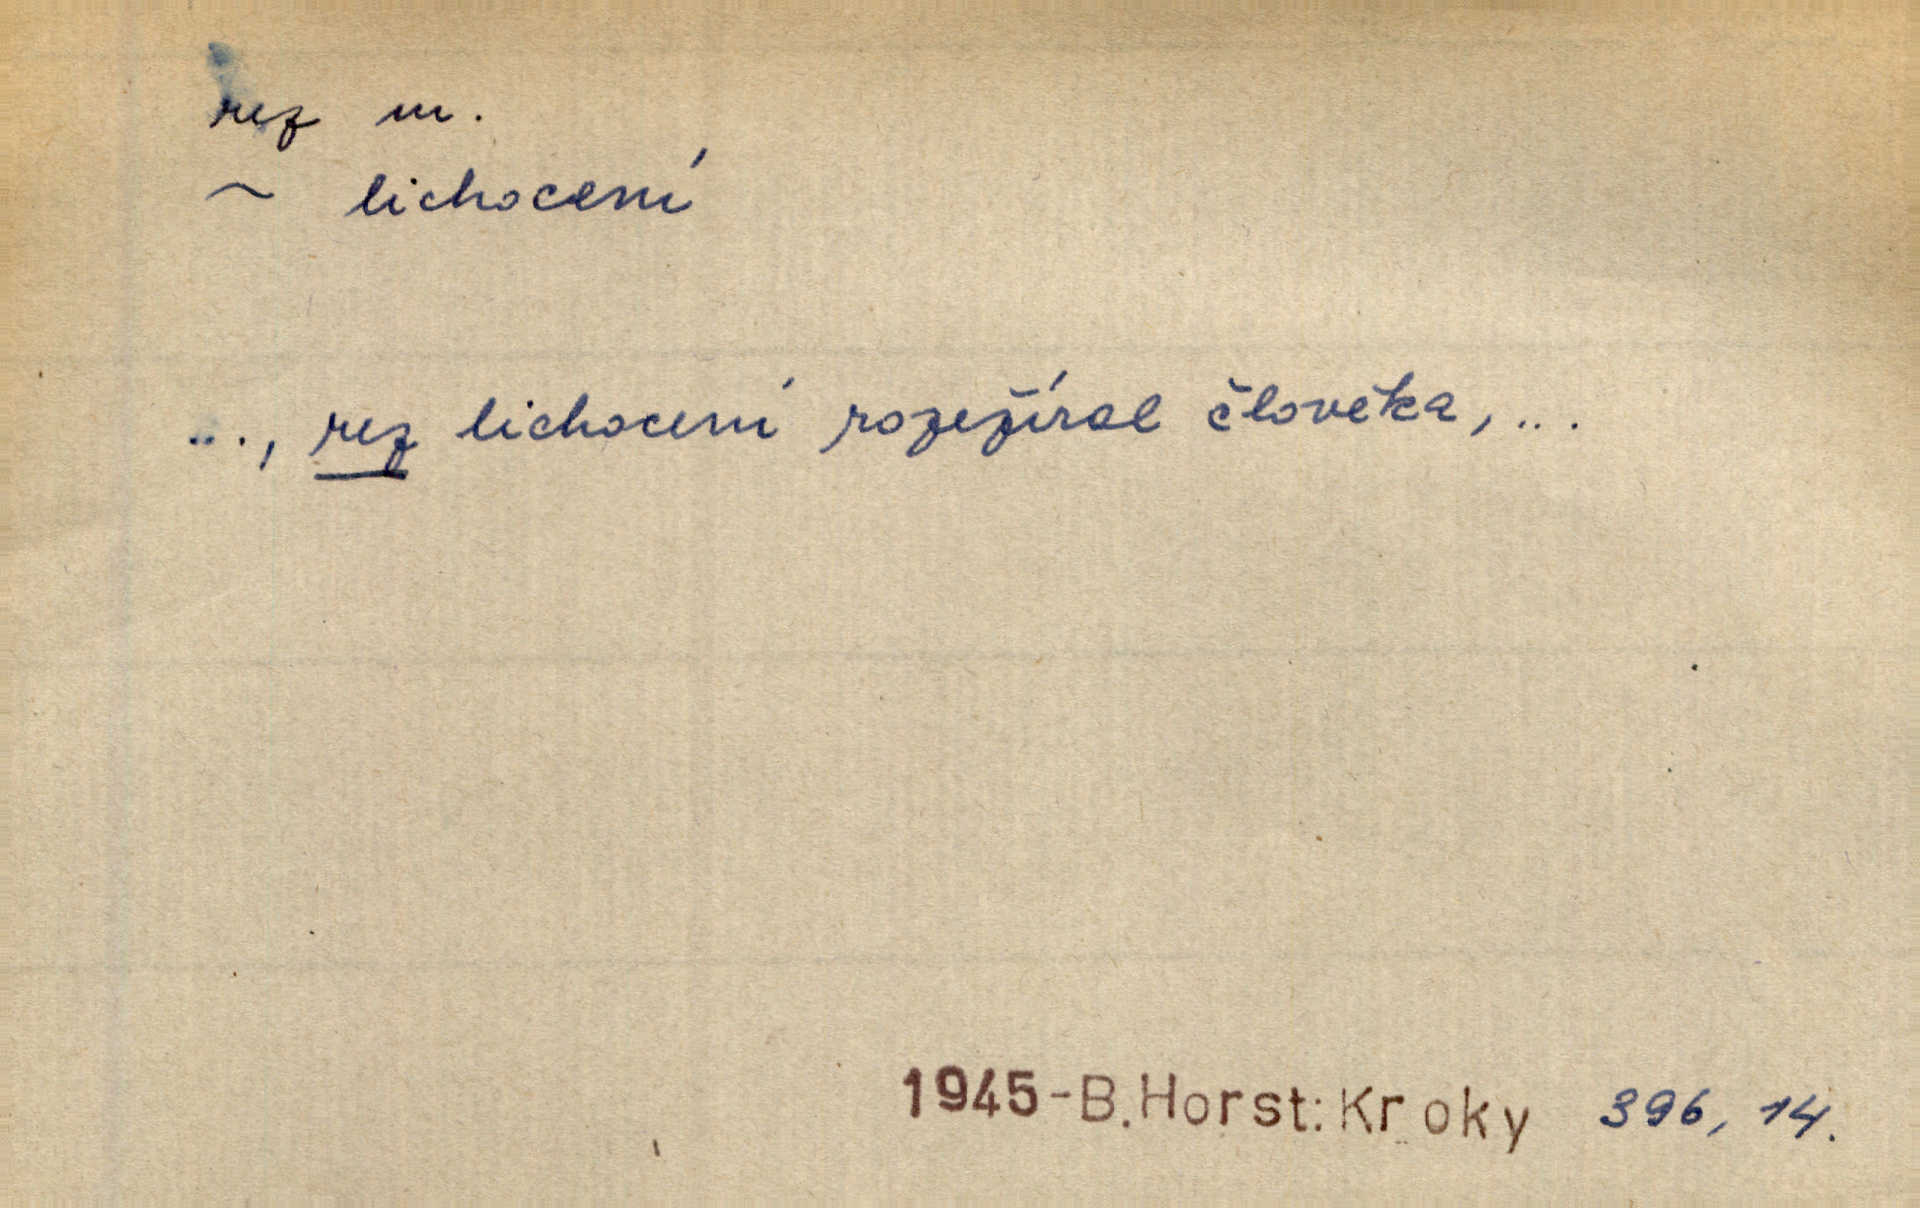 rez m.
~ lichocení
..., rez lichocení rozežíral člověka, ...
1945-B.Horst: Kroky 396, 14.